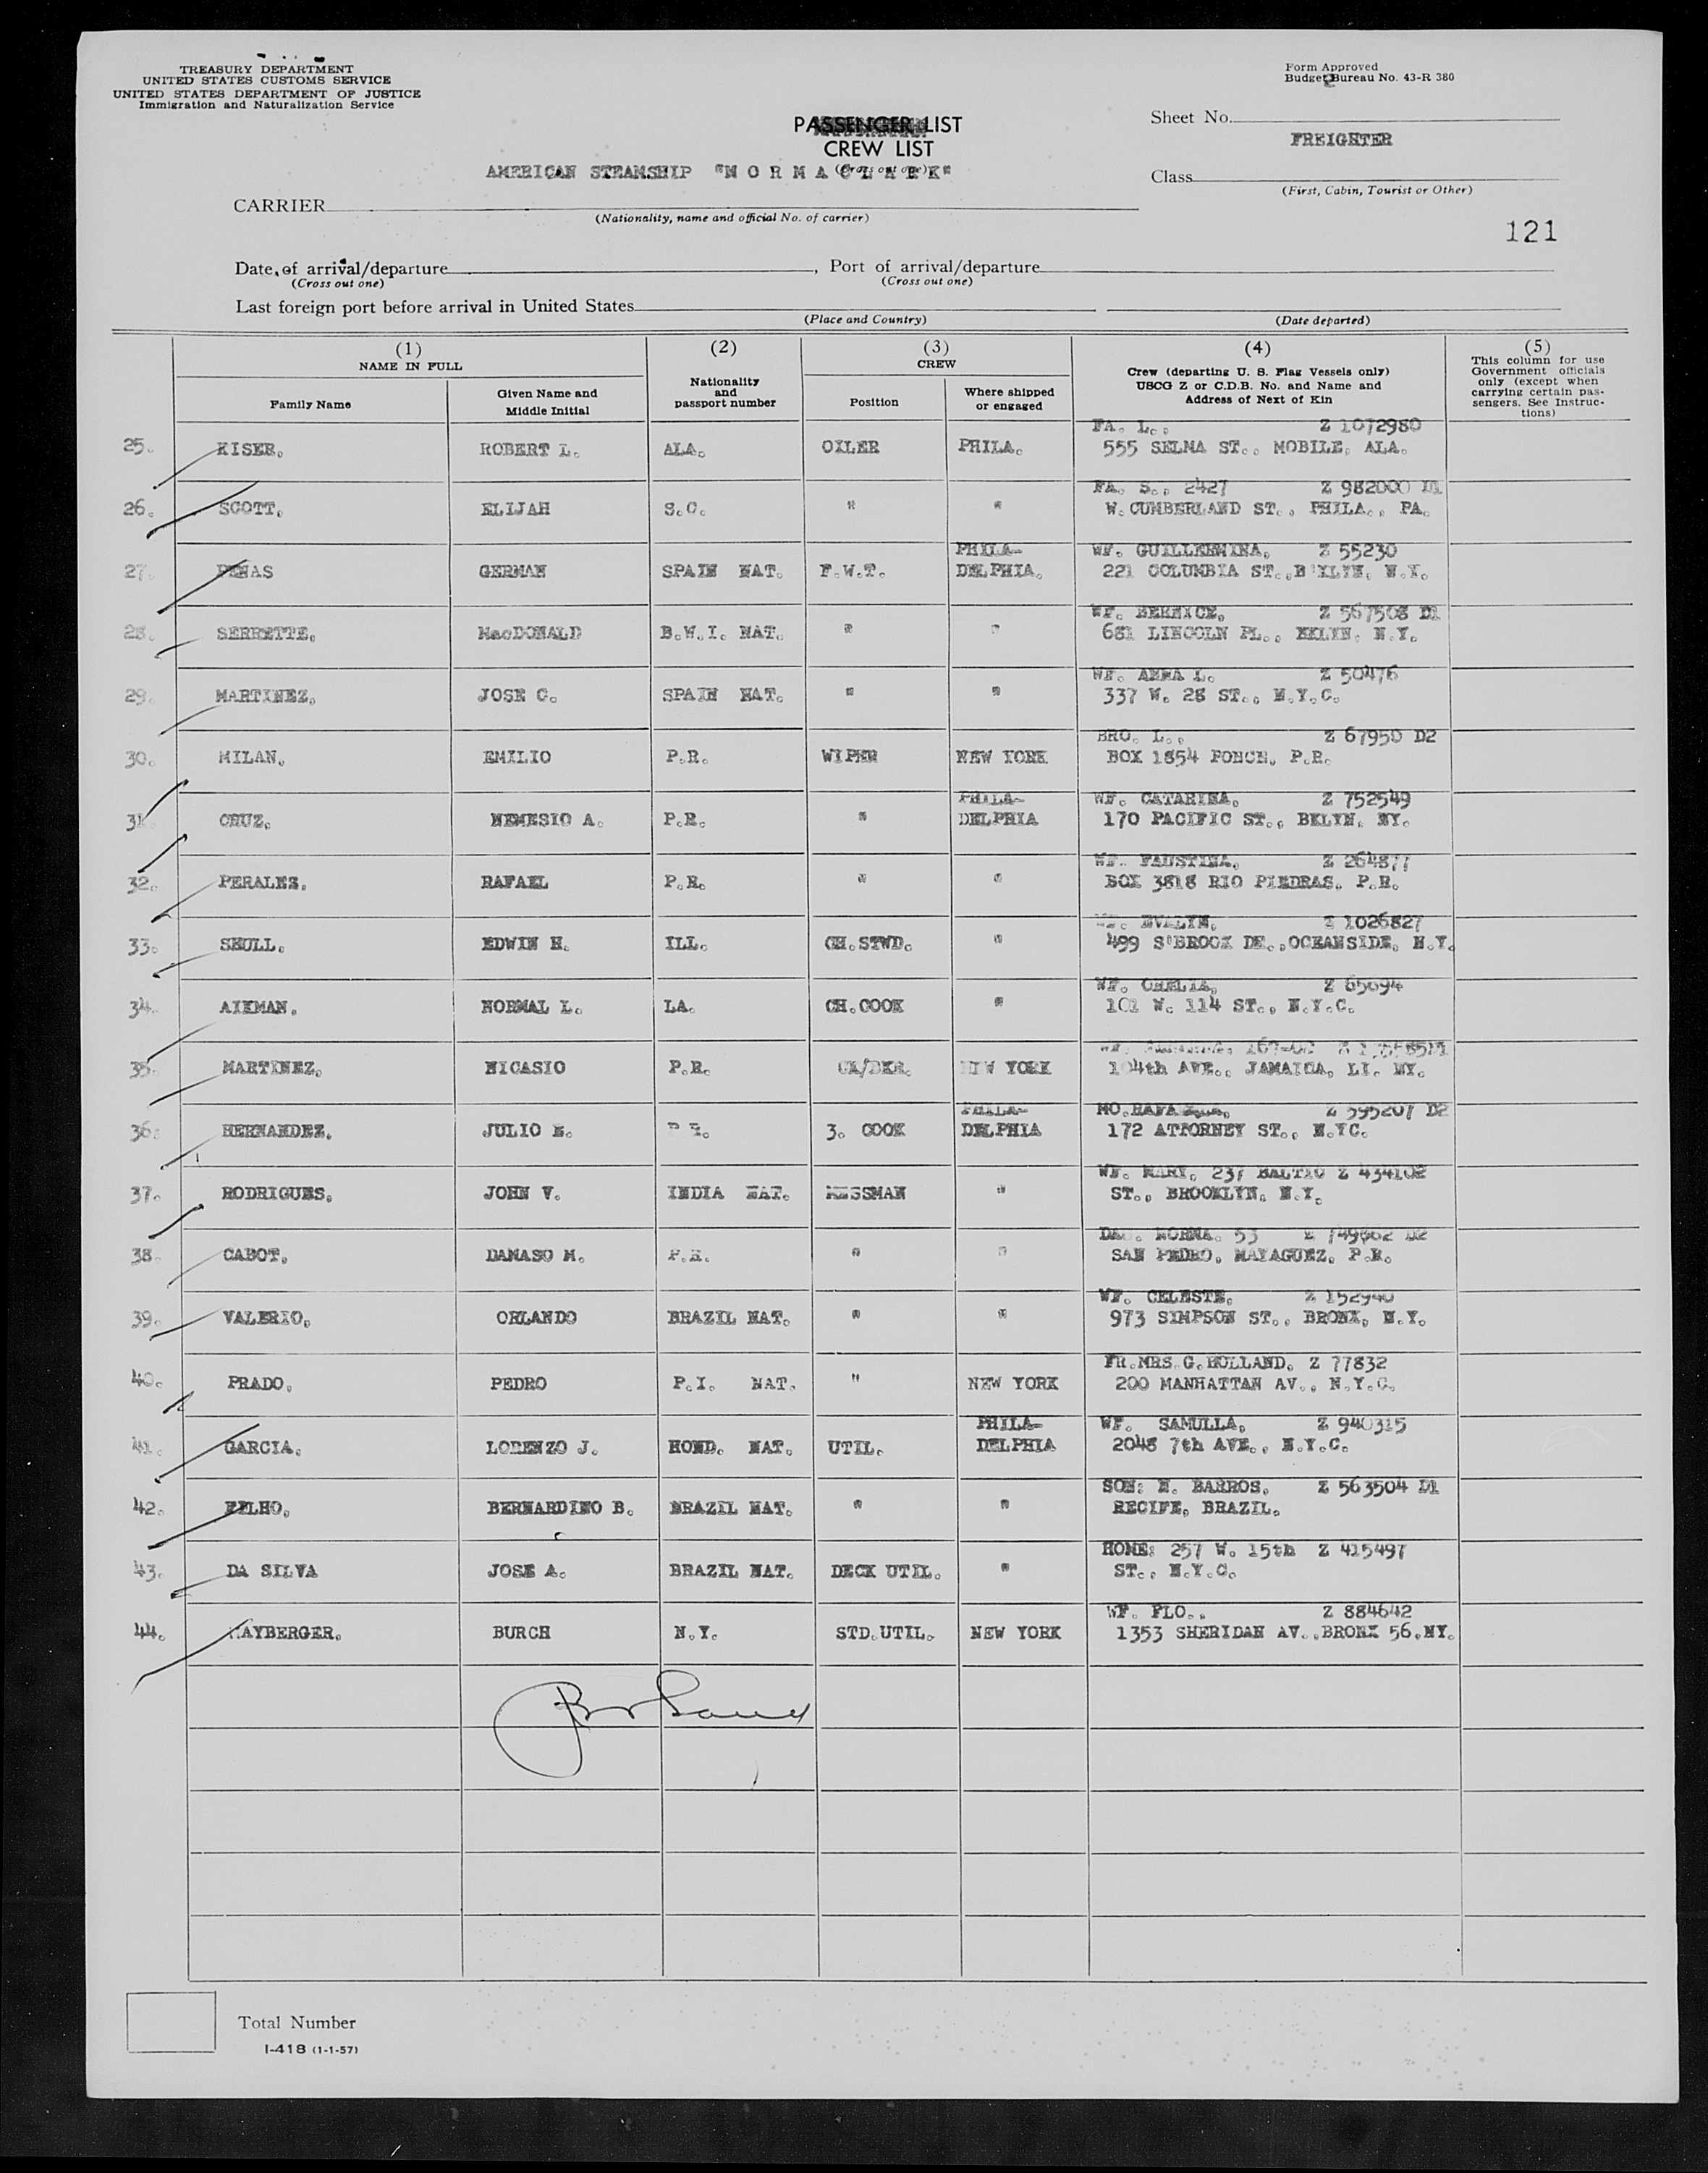 TREASURY DEPARTMENT
UNITED STATES CUSTOMS SERVICE
UNITED STATES DEPARTMENT OF JUSTICE
Immigration and Naturalization Service
Form Approved
Budget Bureau No. 43-R 380
PASSENGER LIST
CREW LIST
(Cross out one)
Sheet No.
FREIGHTER
Class
(First, Cabin, Tourist or Other)
AMERICAN STEAMSHIP "MORMACLARK"
CARRIER
(Nationality, name and official No. of carrier)
121
Date of arrival/departure, Port of arrival/departure
(Cross out one) (Cross out one)
Last foreign port before arrival in United States
(Place and Country) (Date departed)
(1) NAME IN FULL
Family Name
Given Name and Middle Initial
(2) Nationality and passport number
(3) CREW
Position
Where shipped or engaged
(4) Crew (departing U. S. Flag Vessels only) USCG Z or C.D.B. No. and Name and Address of Next of Kin
(5) This column for use Government officials only (except when carrying certain passengers. See Instructions)
FA. L., Z 1072980
25. KISER, ROBERT L. ALA. OILER PHILA. 555 SELMA ST., MOBILE, ALA.
FA. S., 2427 Z 982000 D1
26. SCOTT, ELIJAH S.C. " " W. CUMBERLAND ST., PHILA., PA.
PHILA- WF. GUILLERMINA, Z 55230
27. PENAS GERMAN SPAIN NAT. F.W.T. DELPHIA. 221 COLUMBIA ST., B'KLYN, N.Y.
WF. BERNICE, Z 567508 D1
28. SERRETTE, MacDONALD B.W.I. NAT. " " 681 LINCOLN PL., BKLYN, N.Y.
WF. ANNA L. Z 50476
29. MARTINEZ, JOSE C. SPAIN NAT. " " 337 W. 28 ST., N.Y.C.
BRO. L., Z 67950 D2
30. MILAN, EMILIO P.R. WIPER NEW YORK BOX 1854 PONCE, P.R.
PHILA- WF. CATARINA, Z 752549
31. CRUZ, NEMESIO A. P.R. " DELPHIA 170 PACIFIC ST., BKLYN, NY.
WF. FAUSTINA, Z 264877
32. PERALES, RAFAEL P.R. " " BOX 3818 RIO PIEDRAS, P.R.
EVALYN, Z 1026827
33. SKULL, EDWIN H. ILL. CH.STWD. " 499 S'BROOK DR., OCEANSIDE, N.Y.
WF. Z 65694
34. AIKMAN, NORMAL L. LA. CH.COOK " 101 W. 114 ST., N.Y.C.
35. MARTINEZ, NICASIO P.R. CK/BKR. NEW YORK 104th AVE., JAMAICA, LI. NY.
PHILA- MO. Z 595207 D2
36. HERNANDEZ, JULIO E. P.R. 3. COOK DELPHIA 172 ATTORNEY ST., N.YC.
WF. MARY, 237 BALTIC Z 434102
37. RODRIGUES, JOHN V. INDIA NAT. MESSMAN " ST., BROOKLYN, N.Y.
DAU. NORMA, 53 Z 749662 D2
38. CABOT, DAMASO M. P.R. " " SAN PEDRO, MAYAGUEZ, P.R.
WF. CELESTE, Z 152940
39. VALERIO, ORLANDO BRAZIL NAT. " " 973 SIMPSON ST., BRONX, N.Y.
FR.MRS.G.HOLLAND, Z 77832
40. PRADO, PEDRO P.I. NAT. " NEW YORK 200 MANHATTAN AV., N.Y.C.
PHILA- WF. SAMULLA, Z 940315
41. GARCIA, LORENZO J. HOND. NAT. UTIL. DELPHIA 2048 7th AVE., N.Y.C.
SON: N. BARROS, Z 563504 D1
42. BERNARDINO B. BRAZIL NAT. " " RECIFE, BRAZIL.
HOME: 257 W. 15th Z 415497
43. DA SILVA JOSE A. BRAZIL NAT. DECK UTIL. " ST., N.Y.C.
WF. FLO., Z 884642
44. MAYBERGER, BURCH N.Y. STD.UTIL. NEW YORK 1353 SHERIDAN AV., BRONX 56, NY.
Total Number
I-418 (1-1-57)